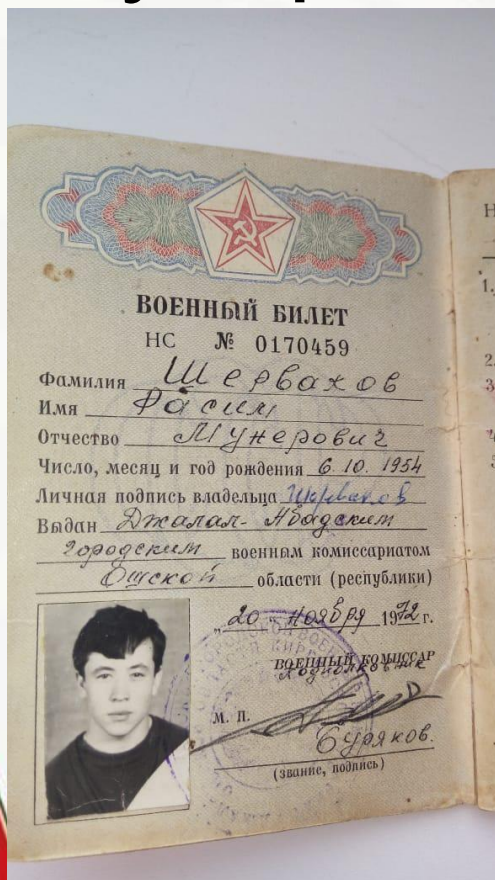 ВОЕННЫЙ БИЛЕТ
НС № 0170459
Фамилия Шервахов
Имя Расим
Отчество Мунерович
Число, месяц и год рождения 6.10.1954
Личная подпись владельца
Выдан Джалал-Абадским
городским военным комиссариатом
Ошской области (республики)
„20" ноября 1972 г.
ВОЕННЫЙ КОМИССАР
подполковник
М. П.
Буряков.
(звание, подпись)
1.
2.
3